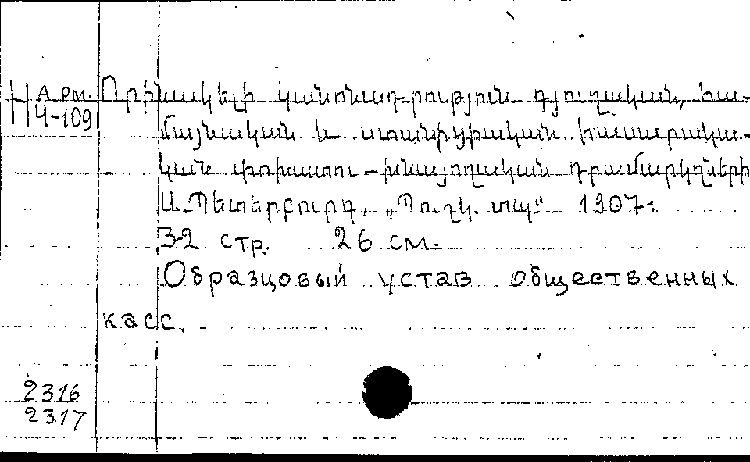 Арм.
4-109
Օրինակելի կանոնադրություն գյուղական, հա-
մայնական և ստանիցիական հասարակա-
կան փոխատու-խնայողական դրամարկղների
Ս. Պետերբուրգ, „Պուշկ. տպ“ 1907.
32 стр. 26 см.
Образцовый устав общественных
касс.
2316
2317